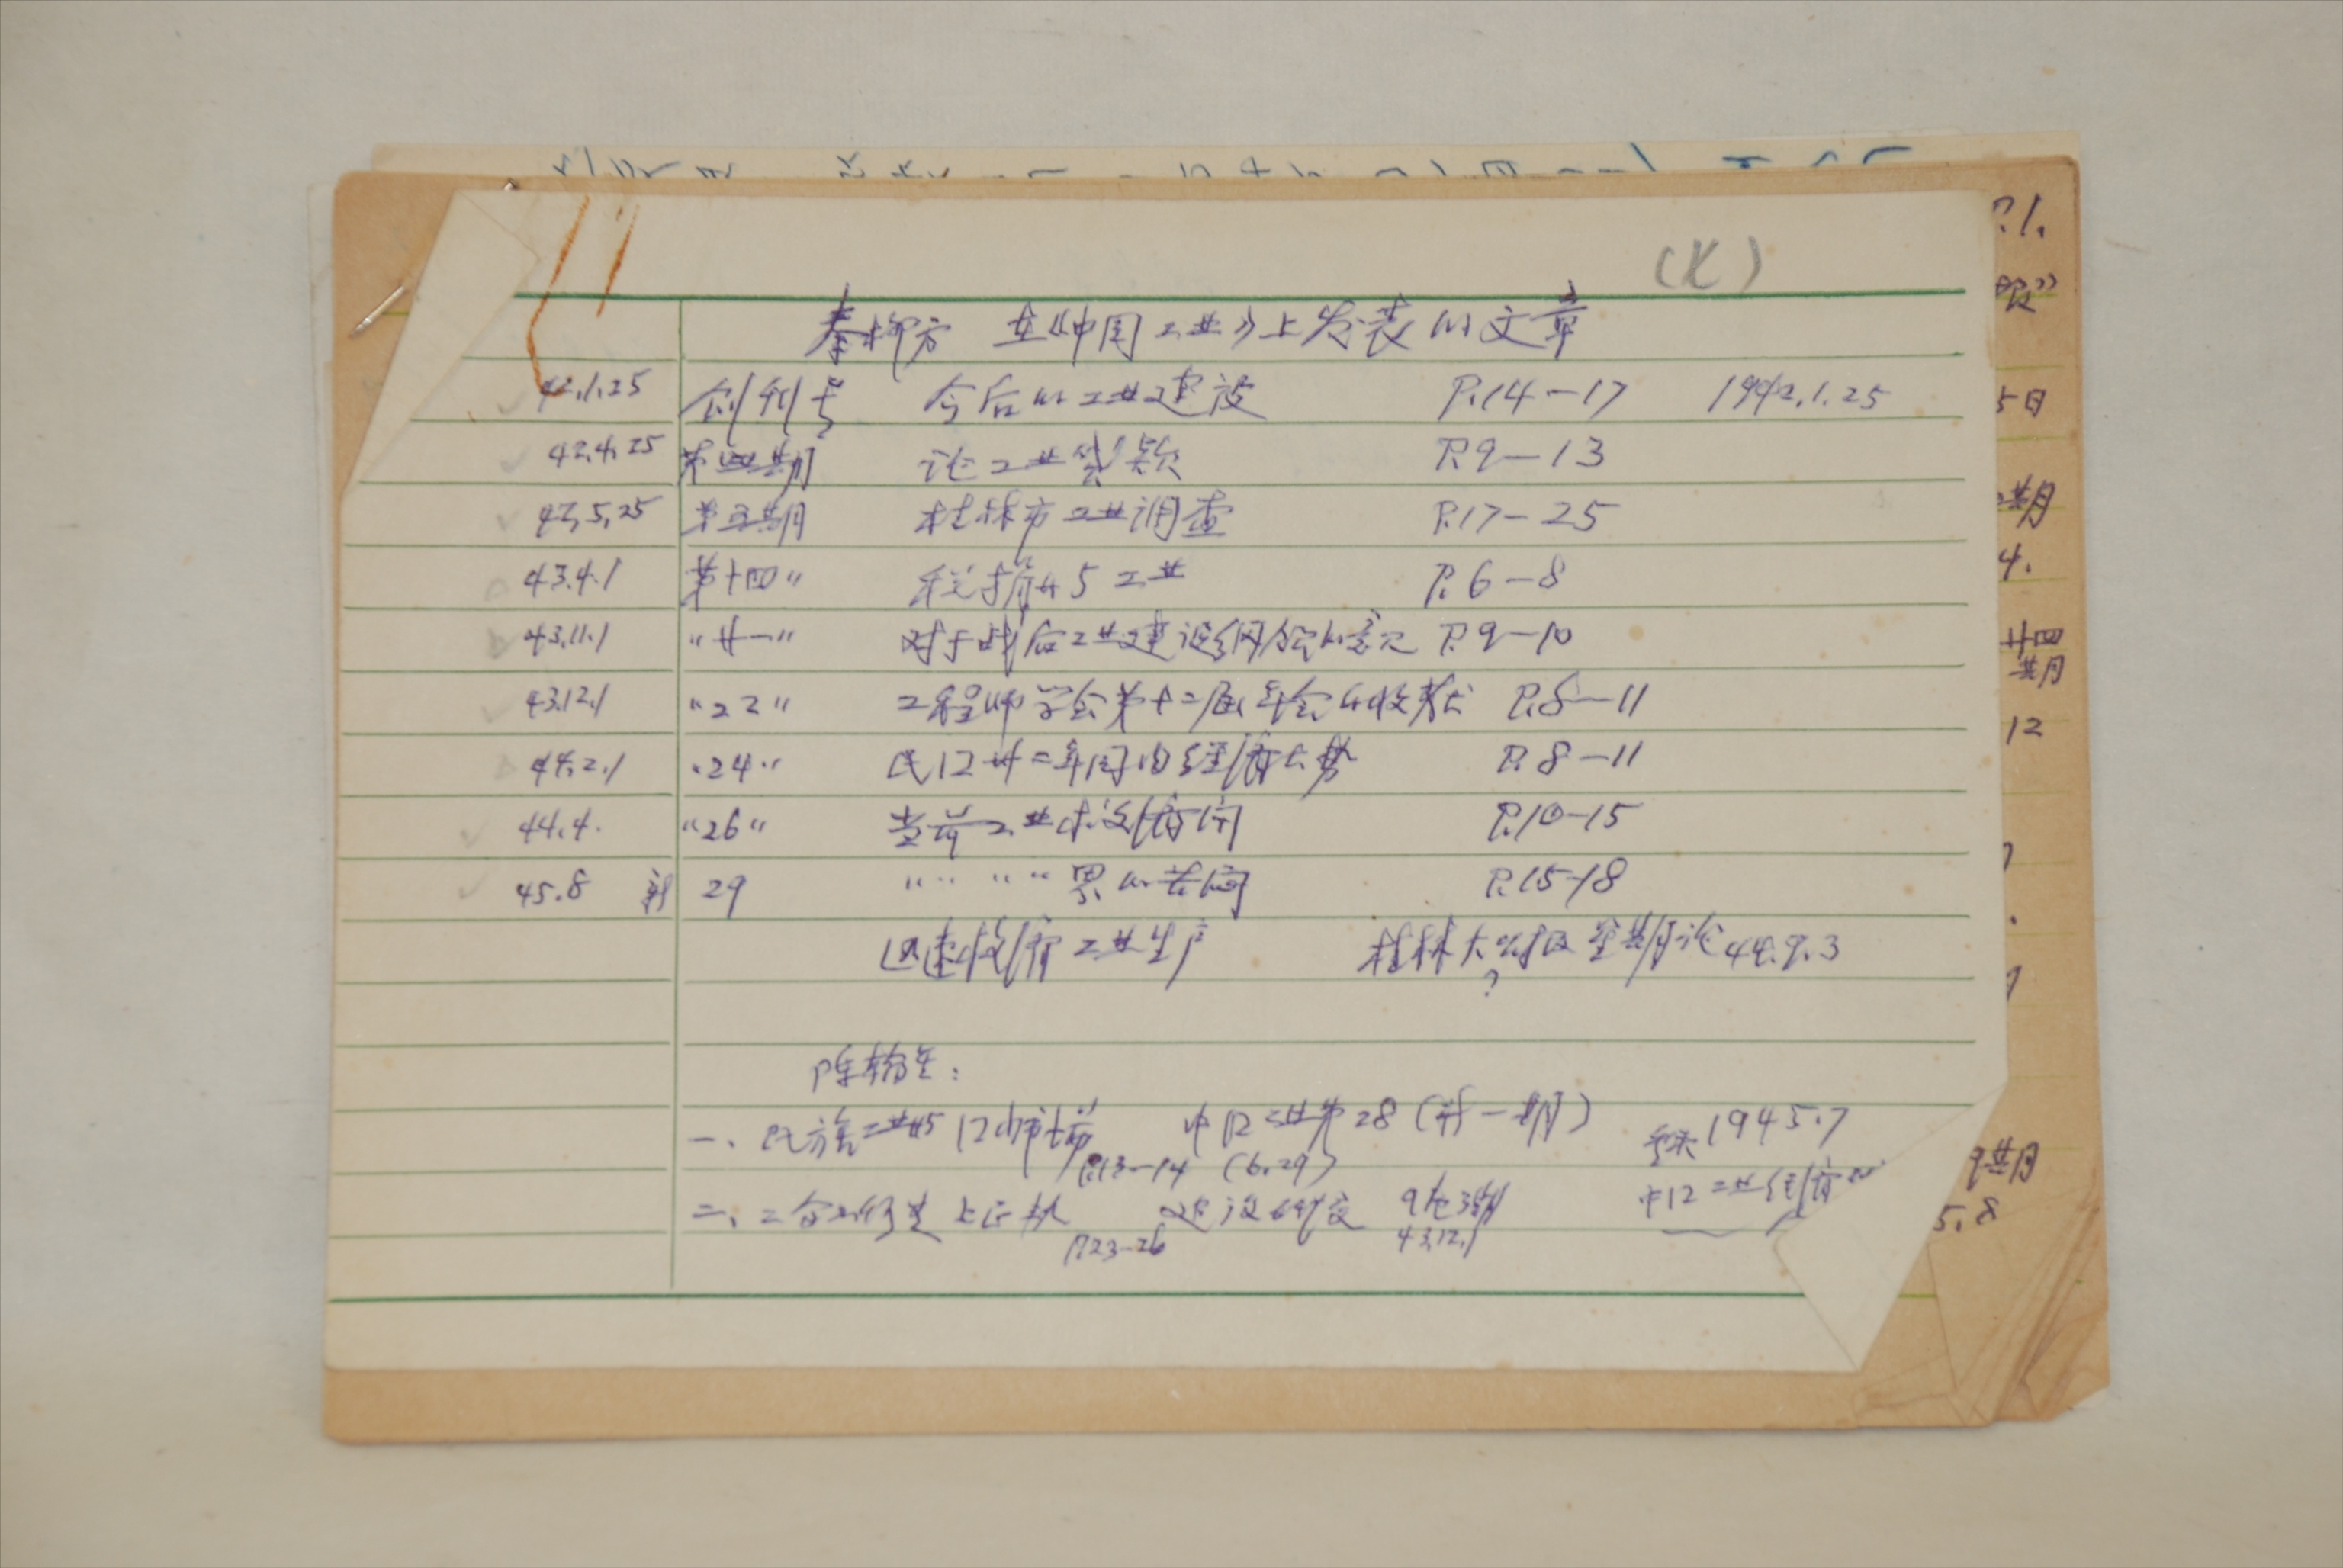 (火)
秦柳方 在《中国工业》上发表的文章
42.1.25 创刊号 今后的工业建设 P.14-17 1942.1.25
42.4.25 第四期 论工业贷款 P.9-13
42.5.25 第五期 桂林市工业调查 P.17-25
43.4.1 第十四〃 税捐与工业 P.6-8
43.11.1 〃廿一〃 对于战后工业建设纲领的意见 P.9-10
43.12.1 〃22〃 工程师学会第十二届年会的收获 P.8-11
44.2.1 〃24〃 民国卅二年国内经济大势 P.8-11
44.4. 〃26〃 当前工业 P.10-15
45.8 新 29 〃〃 〃〃 P.15-18
迅速恢复工业生产 桂林大公报星期论 44.9.3
?
陈翰笙:
一、民族工业与国内市场 中国工业第28(新一期) 重庆 1945.7
P.13-14 (6.29)
二、工合 建设研究 9卷3期 中国工业
P.23-26 43.12.1
P.1.
报”
5日
期
4.
廿四
期
12
9期
5.8